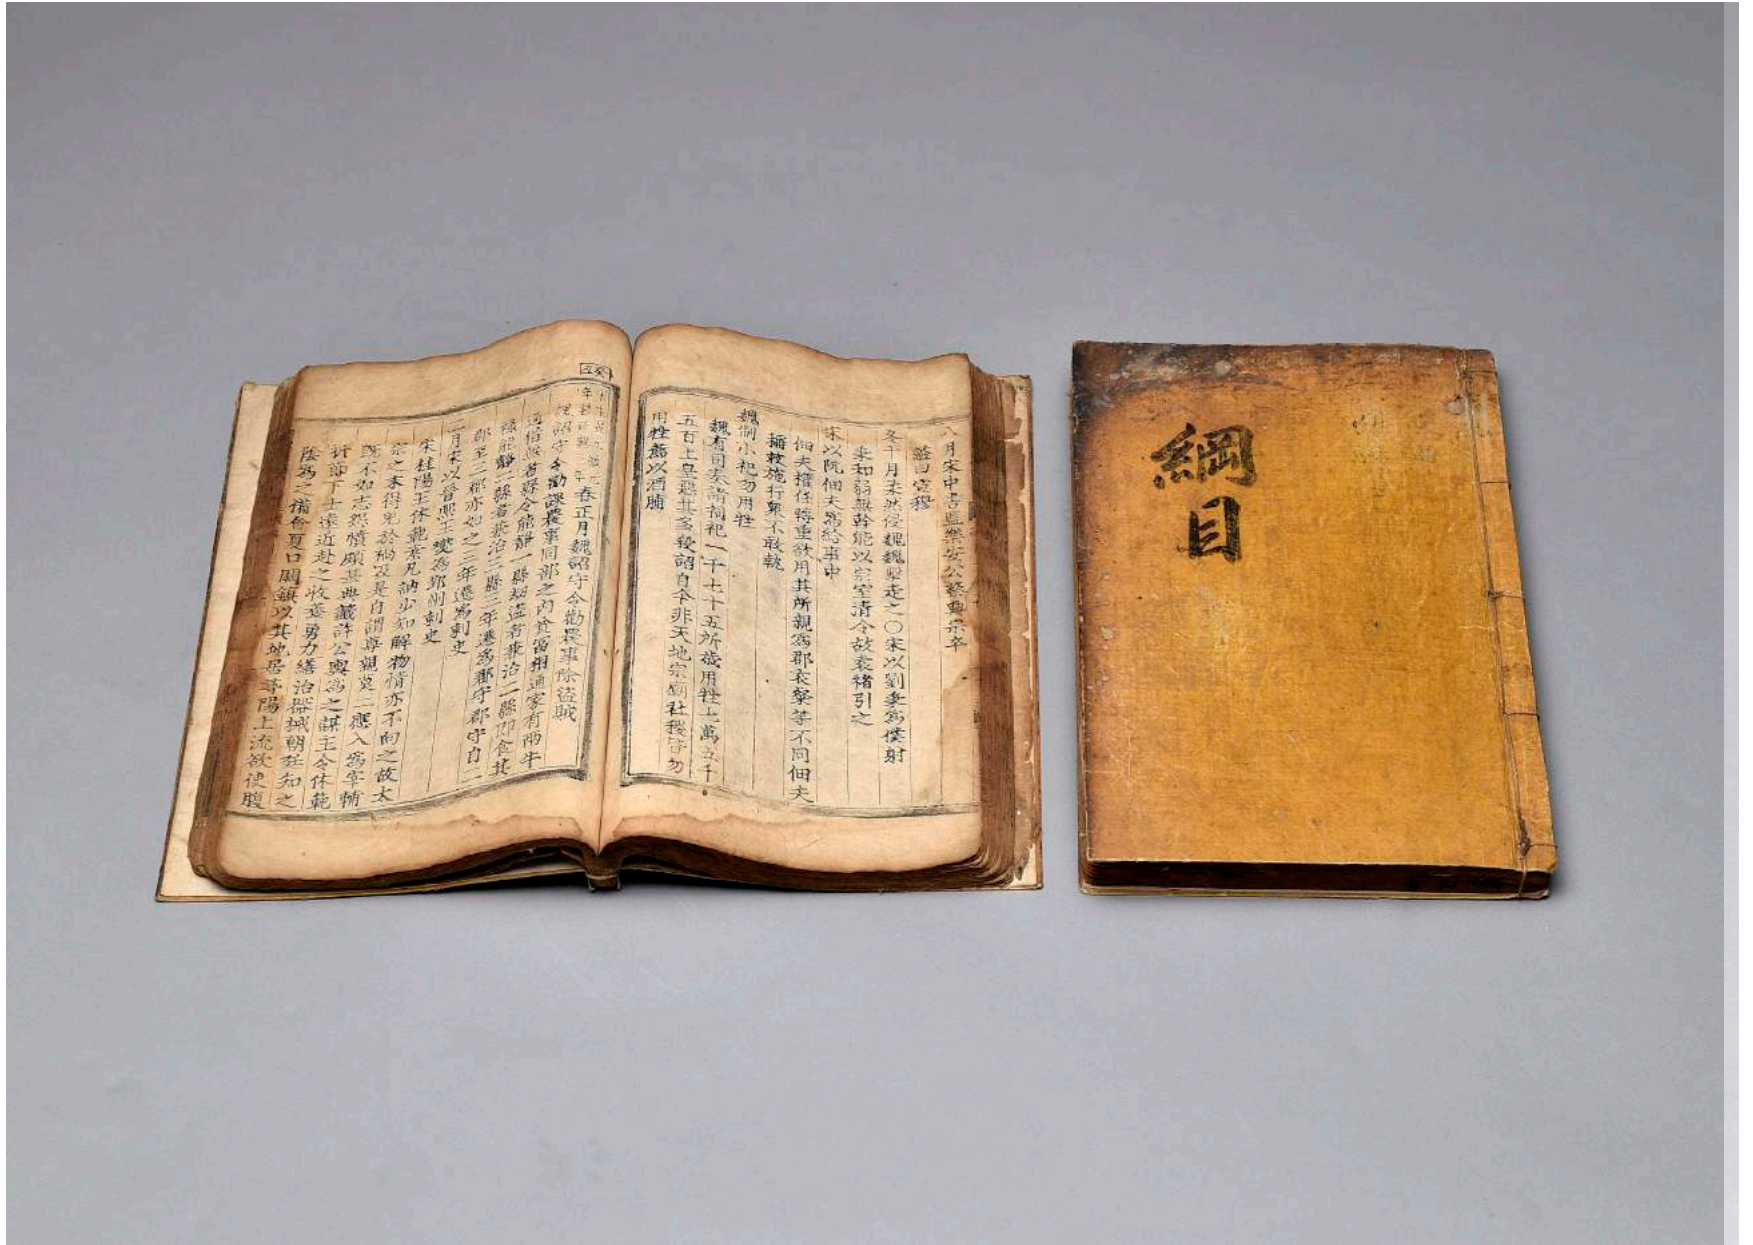 八月宋中書監樂安公蔡興宗卒
諡曰宣穆
冬十月柔然侵魏魏擊走之〇宋以劉秉爲僕射
秉和弱無幹能以宗室清令故袁褚引之
宋以阮佃夫爲給事中
佃夫權任轉重欲用其所親爲郡袁粲等不同佃夫
稱敕施行衆不敢執
魏制小祀勿用牲
魏有司奏諸祠祀一千七十五所歲用牲七萬五千
五百上皇惡其多殺詔自今非天地宗廟社稷皆勿
用牲薦以酒脯
癸丑
春正月魏詔守令勸農事除盗賊
魏詔守令勸課農事同部之內貧富相通家有兩牛
通借無者縣令能靜一縣劫盗者兼治二縣即食其
祿能靜二縣者兼治三縣三年遷爲郡守郡守自二
郡至三郡亦如之三年遷爲刺史
二月宋以晉熙王燮爲郢州刺史
宋桂陽王休範素凡訥少知解物情亦不向之故太
宗之末得免於禍及是自謂尊親莫二應入爲宰輔
旣不如志怨憤頗甚典籤許公輿爲之謀主令休範
折節下士遠近赴之收養勇力繕治器械朝廷知之
陰爲之備會夏口闕鎮以其地居尋陽上流欲使腹
綱目